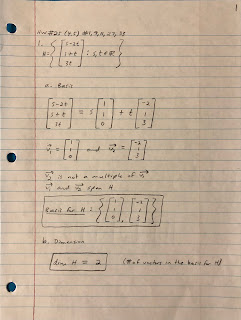 1
HW #25 (4.5) #1, 9, 11, 23, 29
1. H = { [s-2t, s+t, 3t] : s, t ∈ ℝ }
a. Basis
[s-2t, s+t, 3t] = s [1, 1, 0] + t [-2, 1, 3]
v₁ = [1, 1, 0] and v₂ = [-2, 1, 3]
v₂ is not a multiple of v₁
v₁ and v₂ span H
Basis for H = { [1, 1, 0], [-2, 1, 3] }
b. Dimension
dim H = 2 (# of vectors in the basis for H)